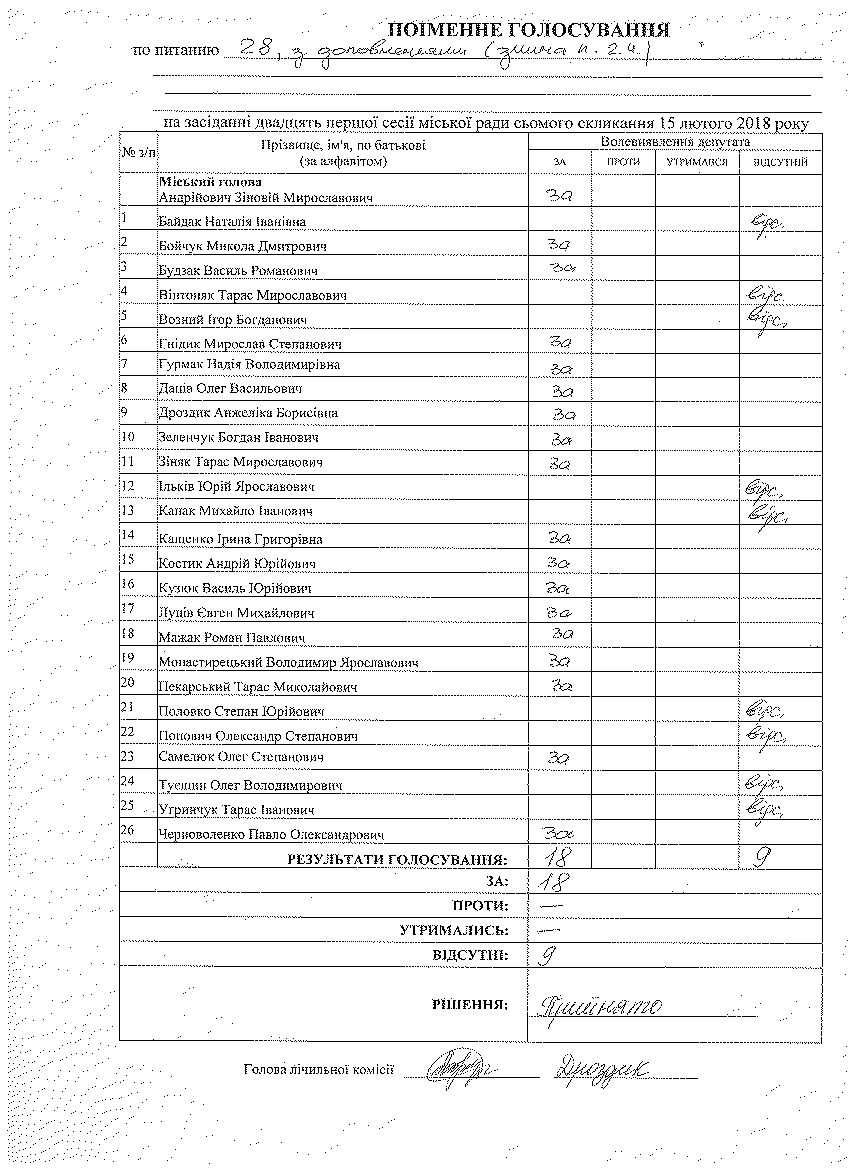 ПОІМЕННЕ ГОЛОСУВАННЯ
по питанню 28, з доповненнями (зміна п. 2.4.)
на засіданні двадцять першої сесії міської ради сьомого скликання 15 лютого 2018 року
№ з/п Прізвище, ім'я, по батькові (за алфавітом) Волевиявлення депутата
ЗА ПРОТИ УТРИМАВСЯ ВІДСУТНІЙ
Міський голова
Андрійович Зіновій Мирославович За
1 Байдак Наталія Іванівна відс.
2 Бойчук Микола Дмитрович За
3 Будзак Василь Романович За
4 Вінтоняк Тарас Мирославович відс.
5 Возний Ігор Богданович відс.
6 Гнідик Мирослав Степанович За
7 Гурмак Надія Володимирівна За
8 Даців Олег Васильович За
9 Дроздик Анжеліка Борисівна За
10 Зеленчук Богдан Іванович За
11 Зіняк Тарас Мирославович За
12 Ільків Юрій Ярославович відс.
13 Канак Михайло Іванович відс.
14 Кащенко Ірина Григорівна За
15 Костик Андрій Юрійович За
16 Кузюк Василь Юрійович За
17 Луців Євген Михайлович За
18 Мажак Роман Павлович За
19 Монастирецький Володимир Ярославович За
20 Пекарський Тарас Миколайович За
21 Половко Степан Юрійович відс.
22 Попович Олександр Степанович відс.
23 Самелюк Олег Степанович За
24 Туєшин Олег Володимирович відс.
25 Угринчук Тарас Іванович відс.
26 Черноволенко Павло Олександрович За
РЕЗУЛЬТАТИ ГОЛОСУВАННЯ: 18 9
ЗА: 18
ПРОТИ: —
УТРИМАЛИСЬ: —
ВІДСУТНІ: 9
РІШЕННЯ: Прийнято
Голова лічильної комісії Дроздик